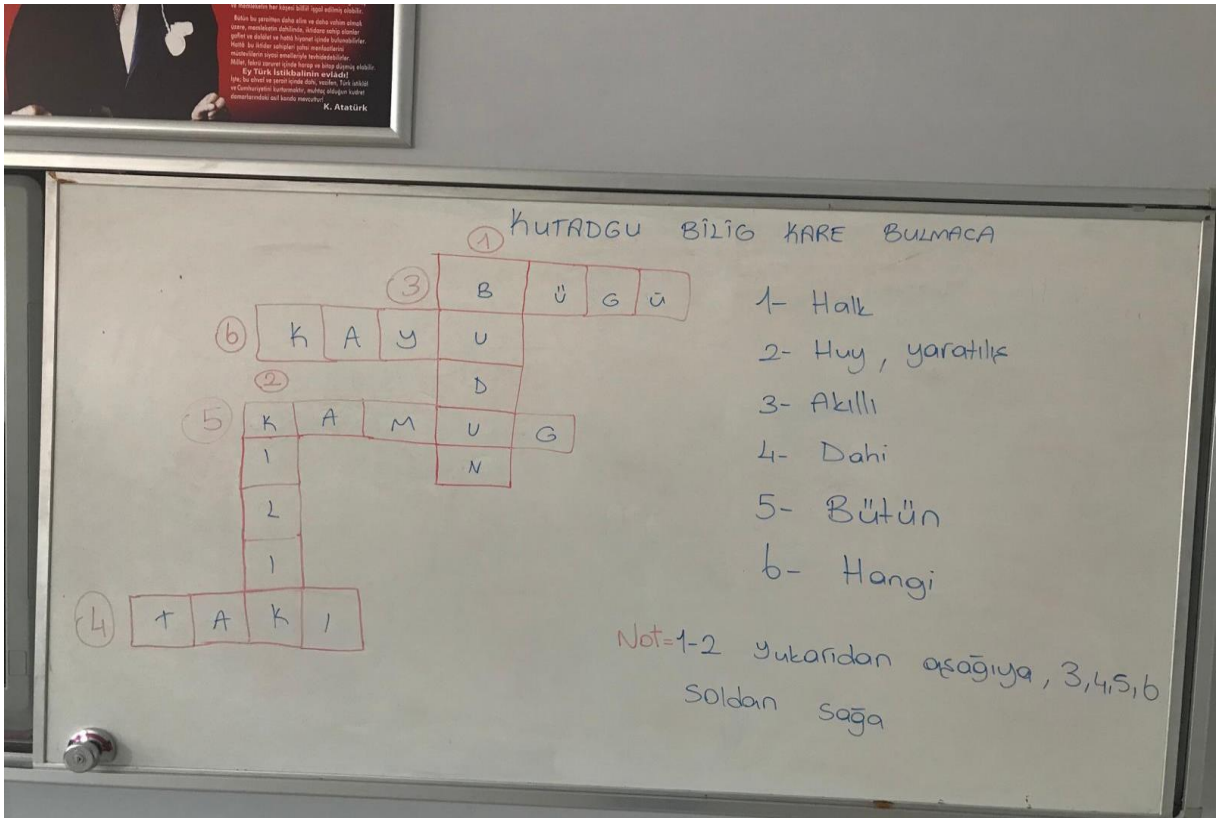 ve memleketin her köşesi bilfiil işgal edilmiş olabilir.
Bütün bu şeraitten daha elim ve daha vahim olmak
üzere, memleketin dahilinde, iktidara sahip olanlar
gaflet ve dalâlet ve hattâ hıyanet içinde bulunabilirler.
Hattâ bu iktidar sahipleri şahsi menfaatlerini
müstevlilerin siyasi emelleriyle tevhidedebilirler.
Millet, fakrü zaruret içinde harap ve bitap düşmüş olabilir.
Ey Türk istikbalinin evlâdı!
İşte, bu ahval ve şerait içinde dahi, vazifen, Türk istiklâl
ve Cumhuriyetini kurtarmaktır, muhtaç olduğun kudret
damarlarındaki asil kanda mevcuttur!
K. Atatürk
KUTADGU BİLİG KARE BULMACA
1
3 B Ü G Ü
6 K A Y U
2 D
5 K A M U G
I N
L
I
4 T A K I
1- Halk
2- Huy, yaratılış
3- Akıllı
4- Dahi
5- Bütün
6- Hangi
Not=1-2 yukarıdan aşağıya, 3,4,5,6
soldan sağa